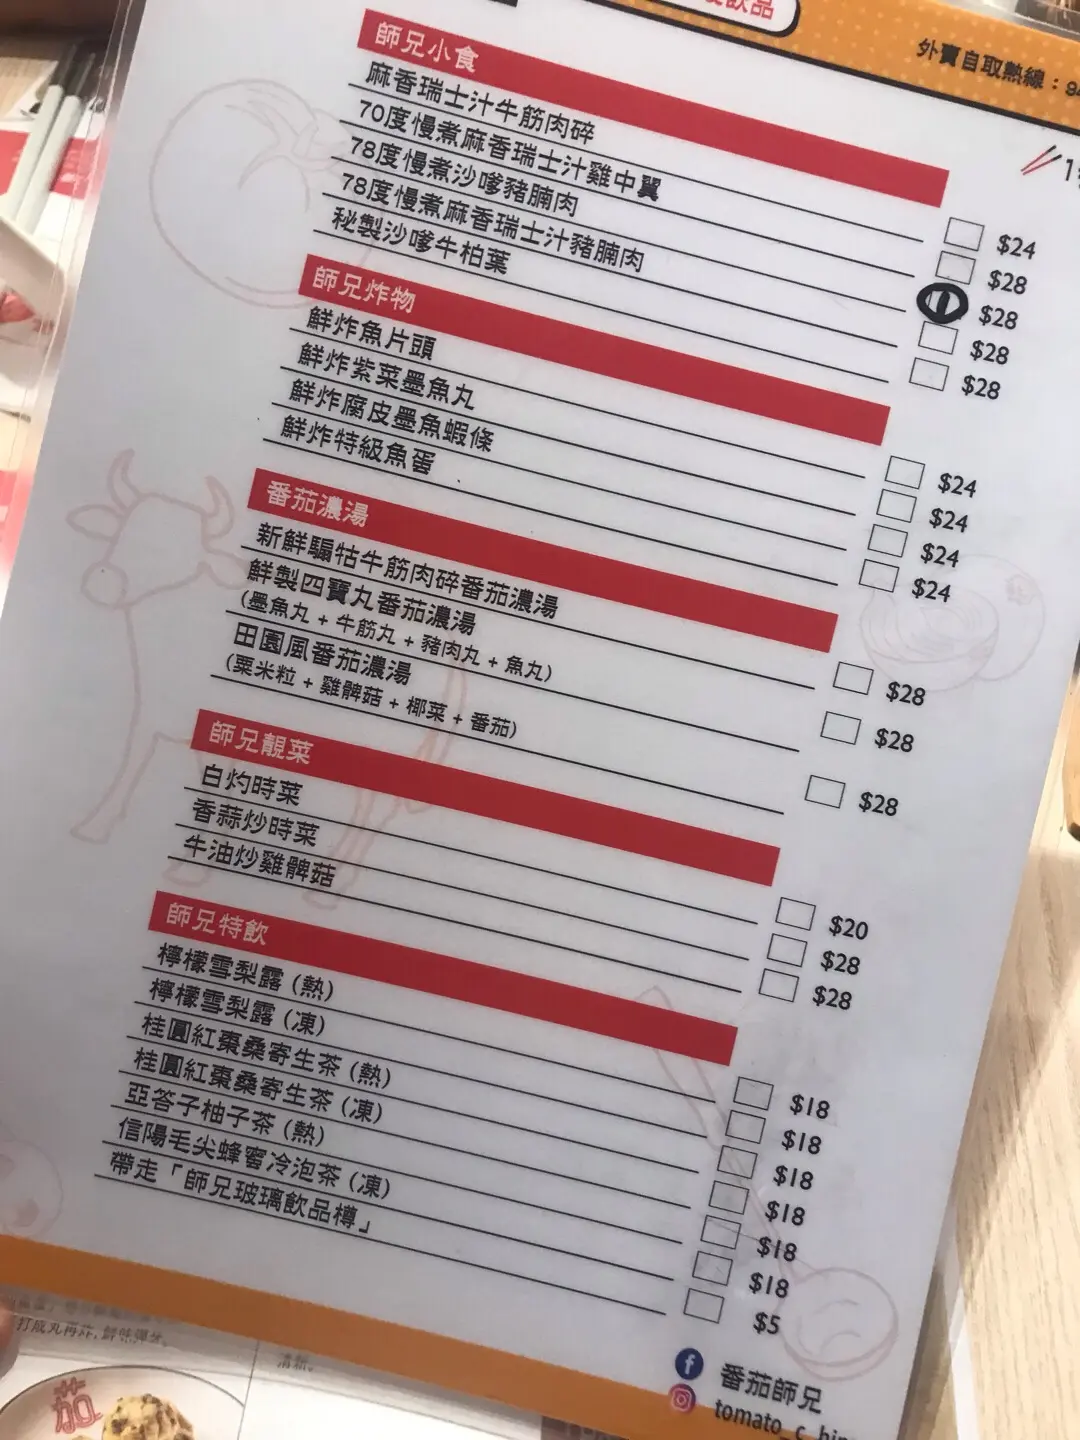 飲品
外賣自取熱線：
師兄小食
麻香瑞士汁牛筋肉碎 $24
70度慢煮麻香瑞士汁雞中翼 $28
78度慢煮沙嗲豬腩肉 $28
78度慢煮麻香瑞士汁豬腩肉 $28
秘製沙嗲牛柏葉 $28
師兄炸物
鮮炸魚片頭 $24
鮮炸紫菜墨魚丸 $24
鮮炸腐皮墨魚蝦條 $24
鮮炸特級魚蛋 $24
番茄濃湯
新鮮騸牯牛筋肉碎番茄濃湯 $28
鮮製四寶丸番茄濃湯 $28
(墨魚丸 + 牛筋丸 + 豬肉丸 + 魚丸)
田園風番茄濃湯 $28
(粟米粒 + 雞髀菇 + 椰菜 + 番茄)
師兄靚菜
白灼時菜 $20
香蒜炒時菜 $28
牛油炒雞髀菇 $28
師兄特飲
檸檬雪梨露 (熱) $18
檸檬雪梨露 (凍) $18
桂圓紅棗桑寄生茶 (熱) $18
桂圓紅棗桑寄生茶 (凍) $18
亞答子柚子茶 (熱) $18
信陽毛尖蜂蜜冷泡茶 (凍) $18
帶走「師兄玻璃飲品樽」 $5
番茄師兄
打成丸再炸,鮮味彈牙。
清新。
茄